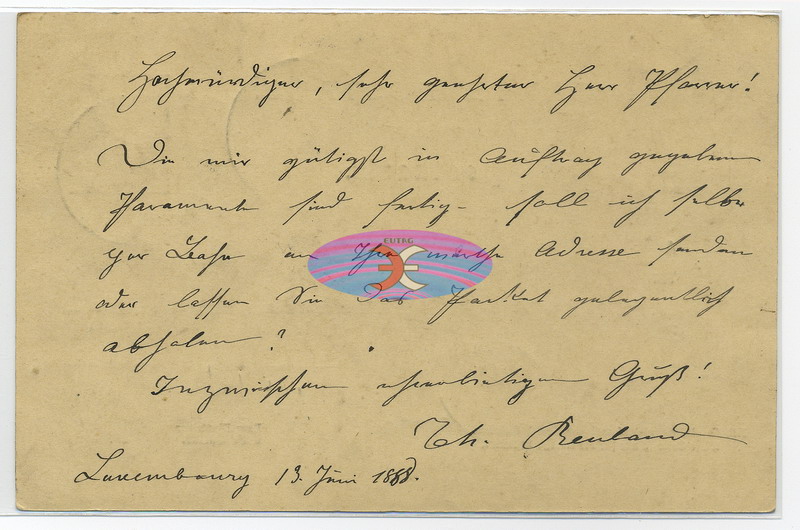 Hochwürdiger, sehr geehrter Herr Pfarrer!
Die mir gütigst in Auftrag gegebenen
Paramente sind fertig – soll ich selbe
per Bahn an Ihre werthe Adresse senden
oder lassen Sie das Packet gelegentlich
abholen?
Inzwischen ehrerbietigen Gruß!
Th. Reuland
Luxembourg 13. Juni 1888.
EUTAG